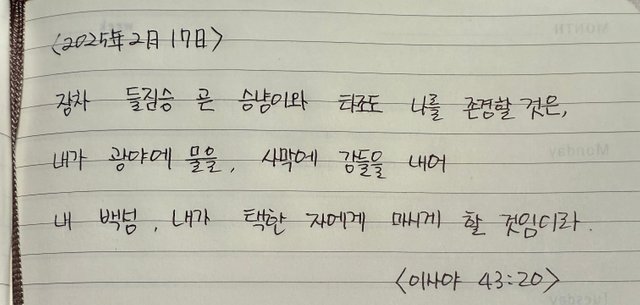 <2025年 2月 17日>
장차 들짐승 곧 승냥이와 타조도 나를 존경할 것은,
내가 광야에 물을, 사막에 강들을 내어
내 백성, 내가 택한 자에게 마시게 할 것임이라.
<이사야 43:20>
MONTH
week
Monday
Tuesday